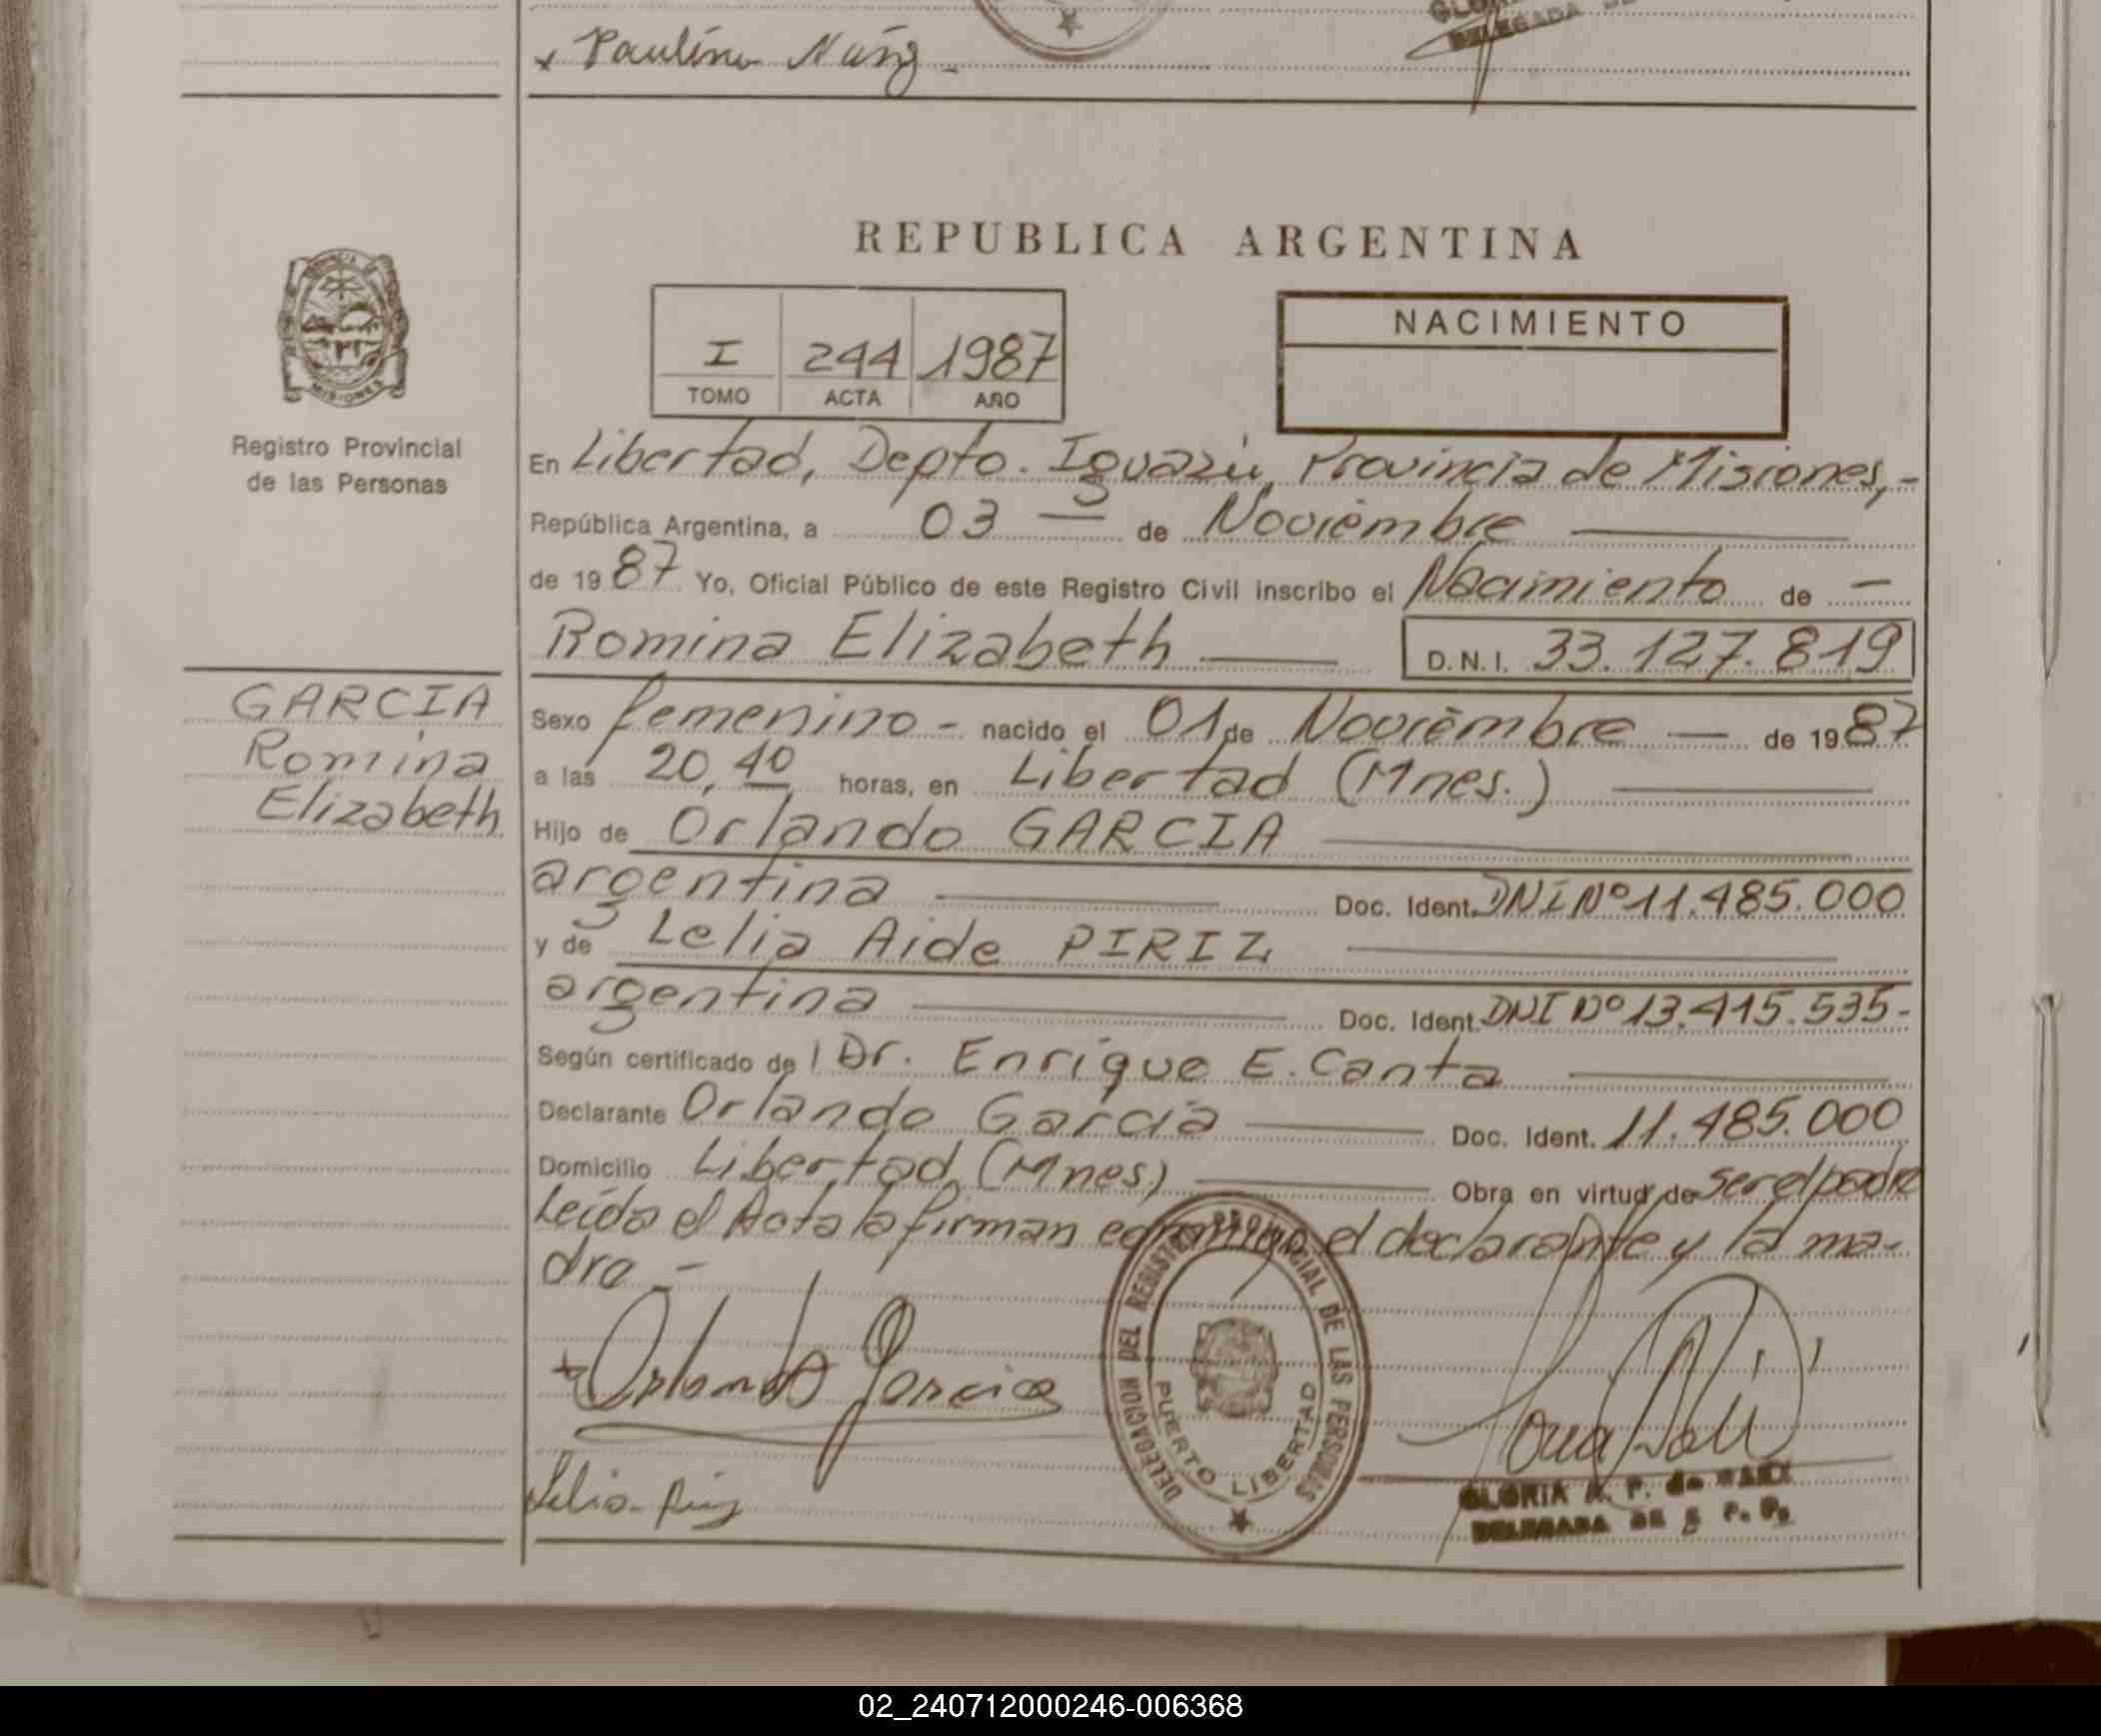 Paulino
GLOR
DELEGADA DE
REPUBLICA ARGENTINA
MISIONES
Registro Provincial
de las Personas
I 244 1987
TOMO ACTA AÑO
NACIMIENTO
En Libertad, Depto. Iguazú, Provincia de Misiones,-
República Argentina, a 03 — de Noviembre —
de 1987 Yo, Oficial Público de este Registro Civil inscribo el Nacimiento de —
Romina Elizabeth — D.N.I. 33.127.819
GARCIA
Romina
Elizabeth
Sexo femenino - nacido el 01 de Noviembre — de 1987
a las 20,40 horas, en Libertad (Mnes.) —
Hijo de Orlando GARCIA —
argentina — Doc. Ident. DNI Nº 11.485.000
y de Lelia Aide PIRIZ —
argentina — Doc. Ident. DNI Nº 13.415.535-
Según certificado del Dr. Enrique E. Canta —
Declarante Orlando Garcia — Doc. Ident. 11.485.000
Domicilio Libertad (Mnes) — Obra en virtud de ser el padre
Leída el Acta la firman conmigo el declarante y la ma-
dre.-
Orlando Garcia
DELEGACION DEL REGISTRO PROVINCIAL DE LAS PERSONAS
PUERTO LIBERTAD
Lelia Piriz
GLORIA A. P. de MARX
DELEGADA DE R. P. P.
02_240712000246-006368